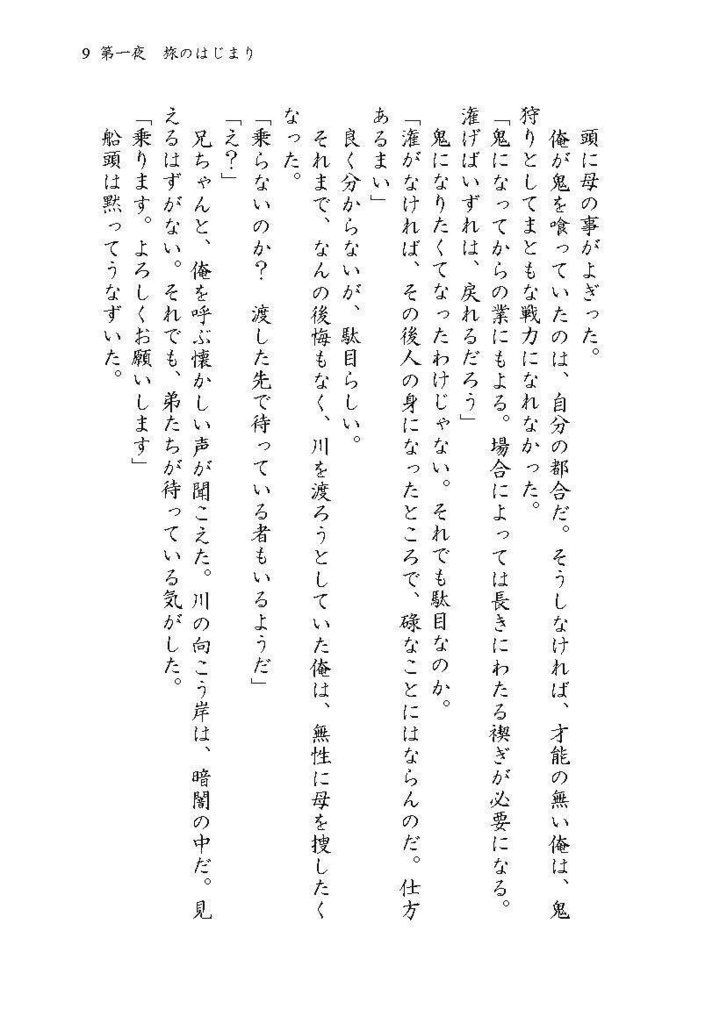 9 第一夜　旅のはじまり
頭に母の事がよぎった。
俺が鬼を喰っていたのは、自分の都合だ。そうしなければ、才能の無い俺は、鬼
狩りとしてまともな戦力になれなかった。
「鬼になってからの業にもよる。場合によっては長きにわたる禊ぎが必要になる。
濯げばいずれは、戻れるだろう」
鬼になりたくてなったわけじゃない。それでも駄目なのか。
「濯がなければ、その後人の身になったところで、碌なことにはならんのだ。仕方
あるまい」
良く分からないが、駄目らしい。
それまで、なんの後悔もなく、川を渡ろうとしていた俺は、無性に母を捜したく
なった。
「乗らないのか？　渡した先で待っている者もいるようだ」
「え？」
兄ちゃんと、俺を呼ぶ懐かしい声が聞こえた。川の向こう岸は、暗闇の中だ。見
えるはずがない。それでも、弟たちが待っている気がした。
「乗ります。よろしくお願いします」
船頭は黙ってうなずいた。